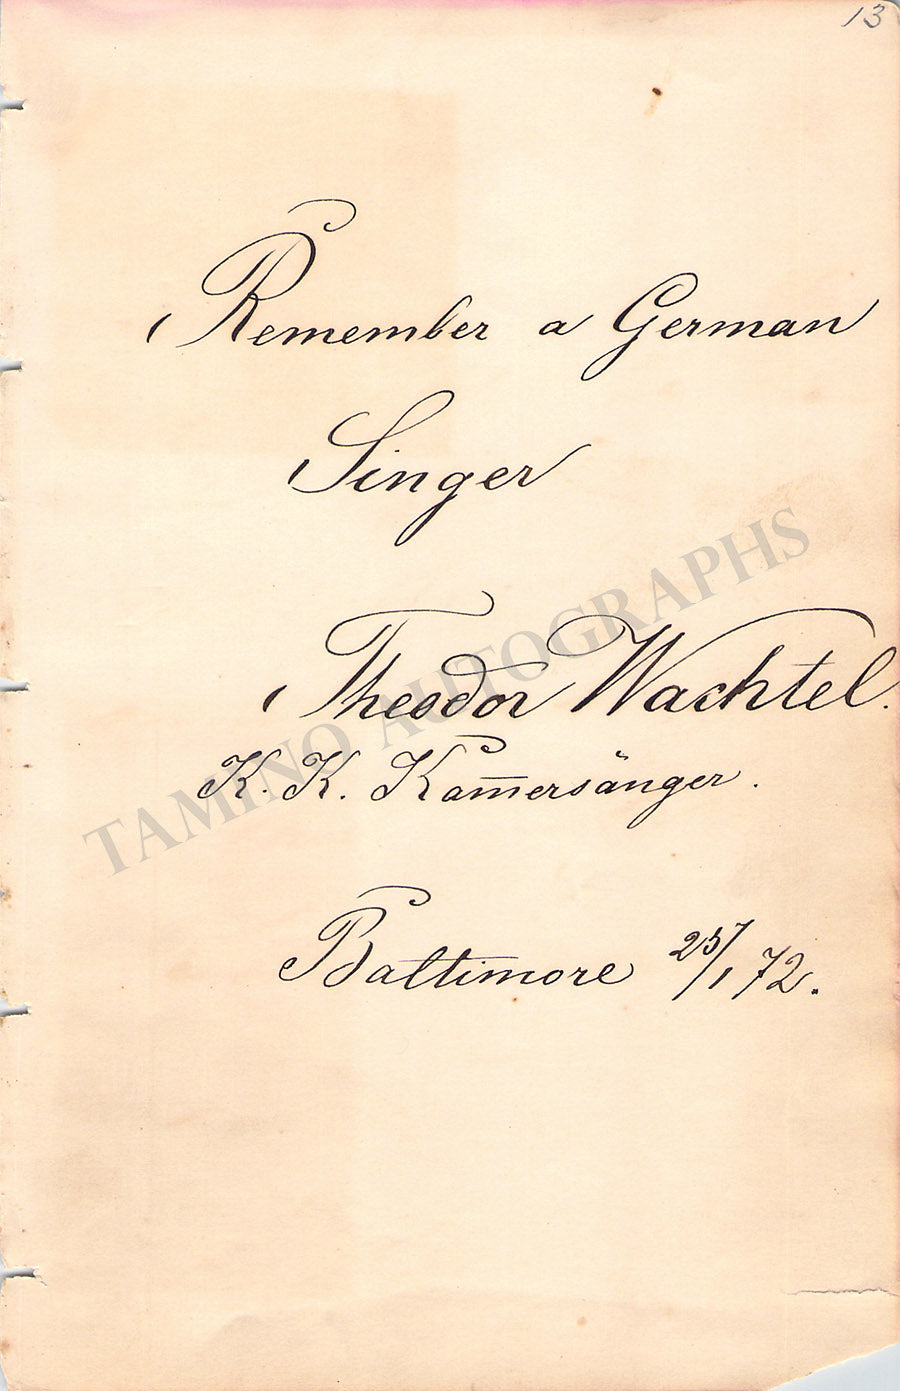 13
Remember a German
Singer
Theodor Wachtel.
K. K. Kam̅ersänger.
Baltimore 25/1 72.
TAMINO AUTOGRAPHS